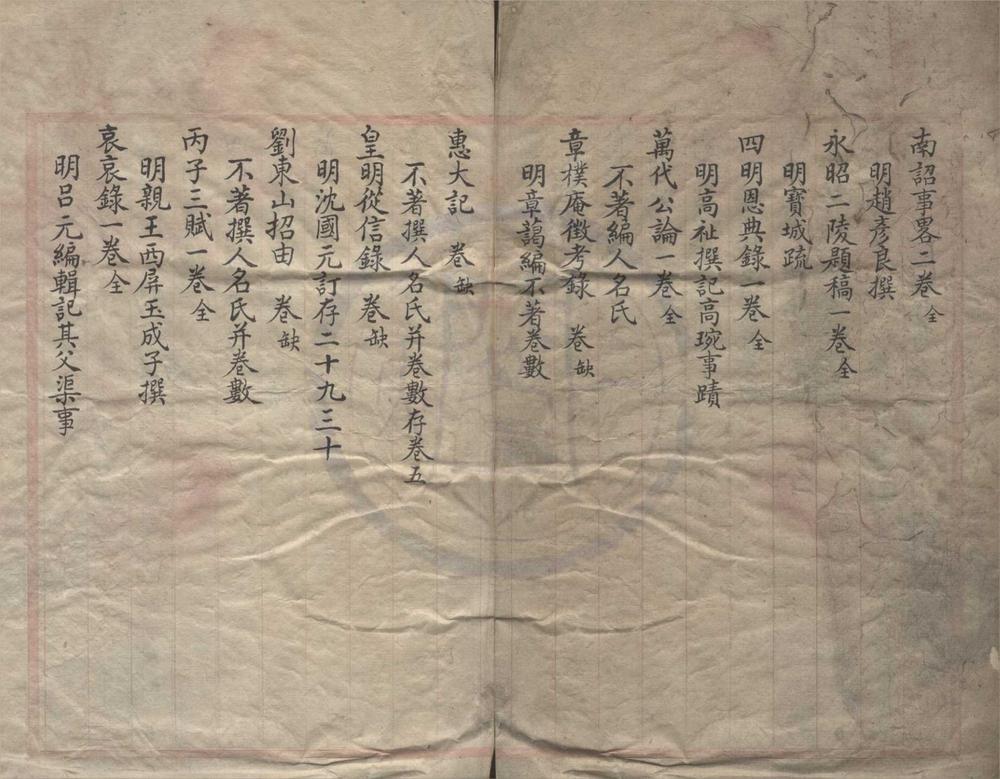 南詔事畧二卷 全
明趙彥良撰
永昭二陵題稿一卷 全
明寶城疏
四明恩典錄一卷 全
明高祉撰記高琬事蹟
萬代公論一卷 全
不著編人名氏
章樸庵徵考錄 卷 缺
明章藹編不著卷數
惠大記 卷 缺
不著撰人名氏并卷數存卷五
皇明從信錄 卷 缺
明沈國元訂存二十九三十
劉東山招由 卷 缺
不著撰人名氏并卷數
丙子三賦一卷 全
明親王西屏玉成子撰
哀哀錄一卷 全
明呂元編輯記其父渠事